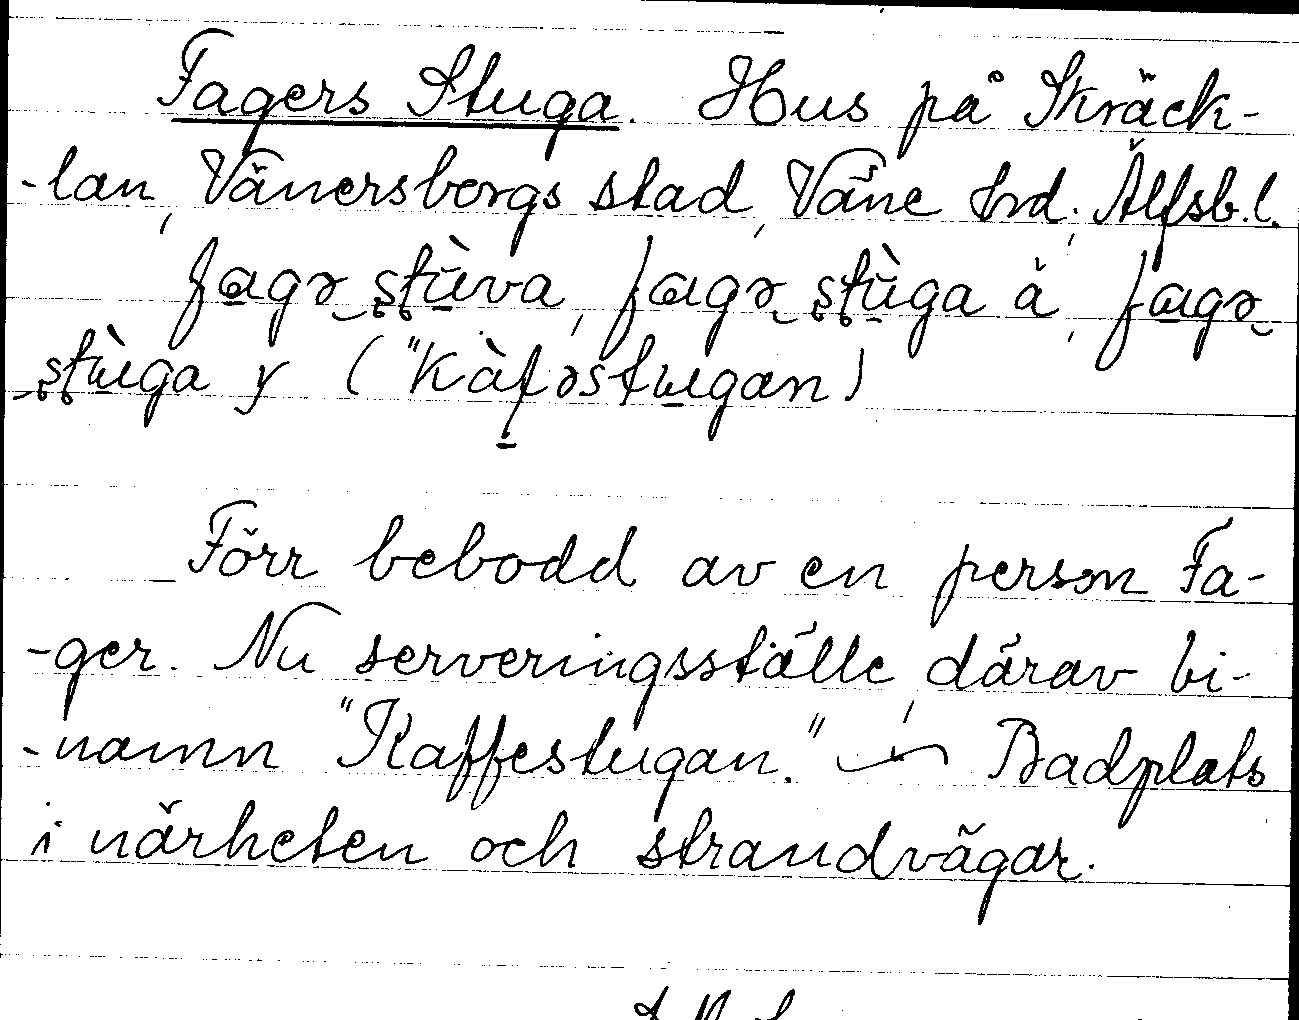 Fagers Stuga. Hus på Skräck-
-lan, Vänersborgs stad, Väne hrd., Älfsb. l.
fagər ştùva, fagər ştùga ä, fagər
ştùga y ("Kàfəstugan)
Förr bebodd av en person Fa-
-ger. Nu serveringsställe, därav bi-
-namn "Kaffestugan." — Badplats
i närheten och strandvägar.